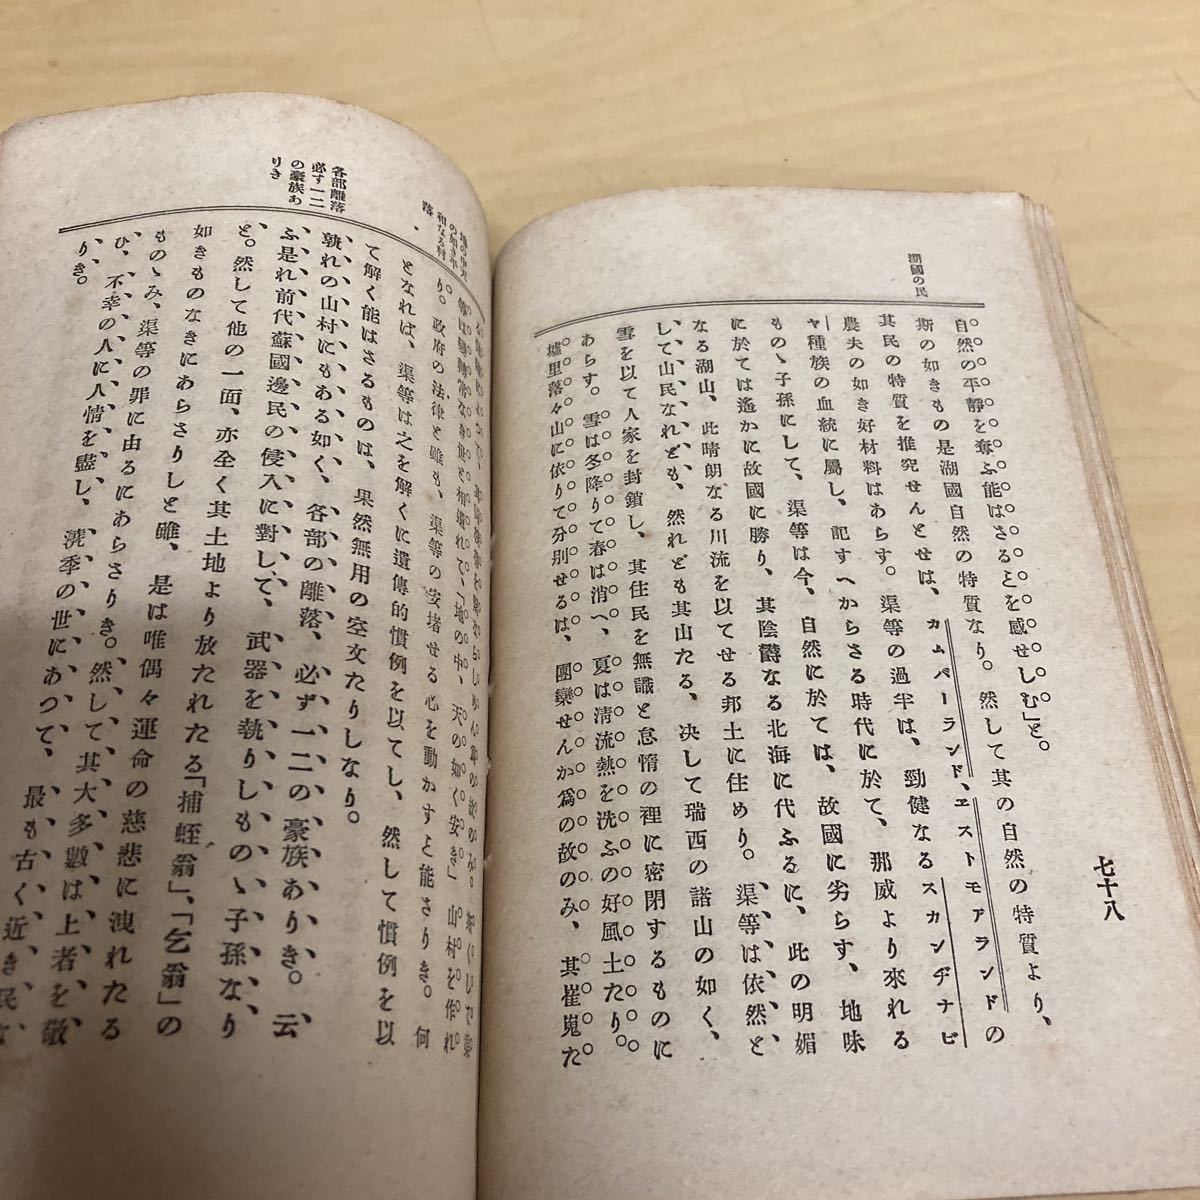 七十八
湖國の民
自然の平靜を奪ふ能はさるとを感せしむ」と。
斯の如きもの是湖國自然の特質なり。然して其の自然の特質より、
其民の特質を推究せんとせは、カムバーランド、ヱストモアランドの
農夫の如き好材料はあらす。渠等の過半は、勁健なるスカンヂナビ
ヤ種族の血統に屬し、記すへからさる時代に於て、那威より來れる
ものゝ子孫にして、渠等は今、自然に於ては、故國に劣らす、地味
に於ては遙かに故國に勝り、其陰欝なる北海に代ふるに、此の明媚
なる湖山、此晴朗なる川流を以てせる邦土に住めり。渠等は依然と
して山民なれども、然れども其山たる、決して瑞西の諸山の如く、
雪を以て人家を封鎖し、其住民を無識と怠惰の裡に密閉するものに
あらす。雪は冬降りて春は消へ、夏は清流熱を洗ふの好風土たり。
墟里落々山に依りて分別せるは、團欒せんか爲の故のみ、其崔嵬た
の如き平
和なる村
落
天の如く安き」山村を作れ
り。政府の法律と雖も、渠等の安堵せる心を動かすと能さりき。何
となれば、渠等は之を解くに遺傳的慣例を以てし、然して慣例を以
て解く能はさるものは、果然無用の空文たりしなり。
各部離落
必す一二
の豪族あ
りき
孰れの山村にもある如く、各部の離落、必ず一二の豪族ありき。云
ふ是れ前代蘇國邊民の侵入に對して、武器を執りしものゝ子孫なり
と。然して他の一面、亦全く其土地より放たれたる「捕蛭翁」、「乞翁」の
如きものなきにあらさりしと雖、是は唯偶々運命の慈悲に洩れたる
ものゝみ、渠等の罪に由るにあらさりき。然して其大多數は上者を敬
ひ、不幸の人に人情を盡し、澆季の世にあつて、最も古く近き民な
りき。